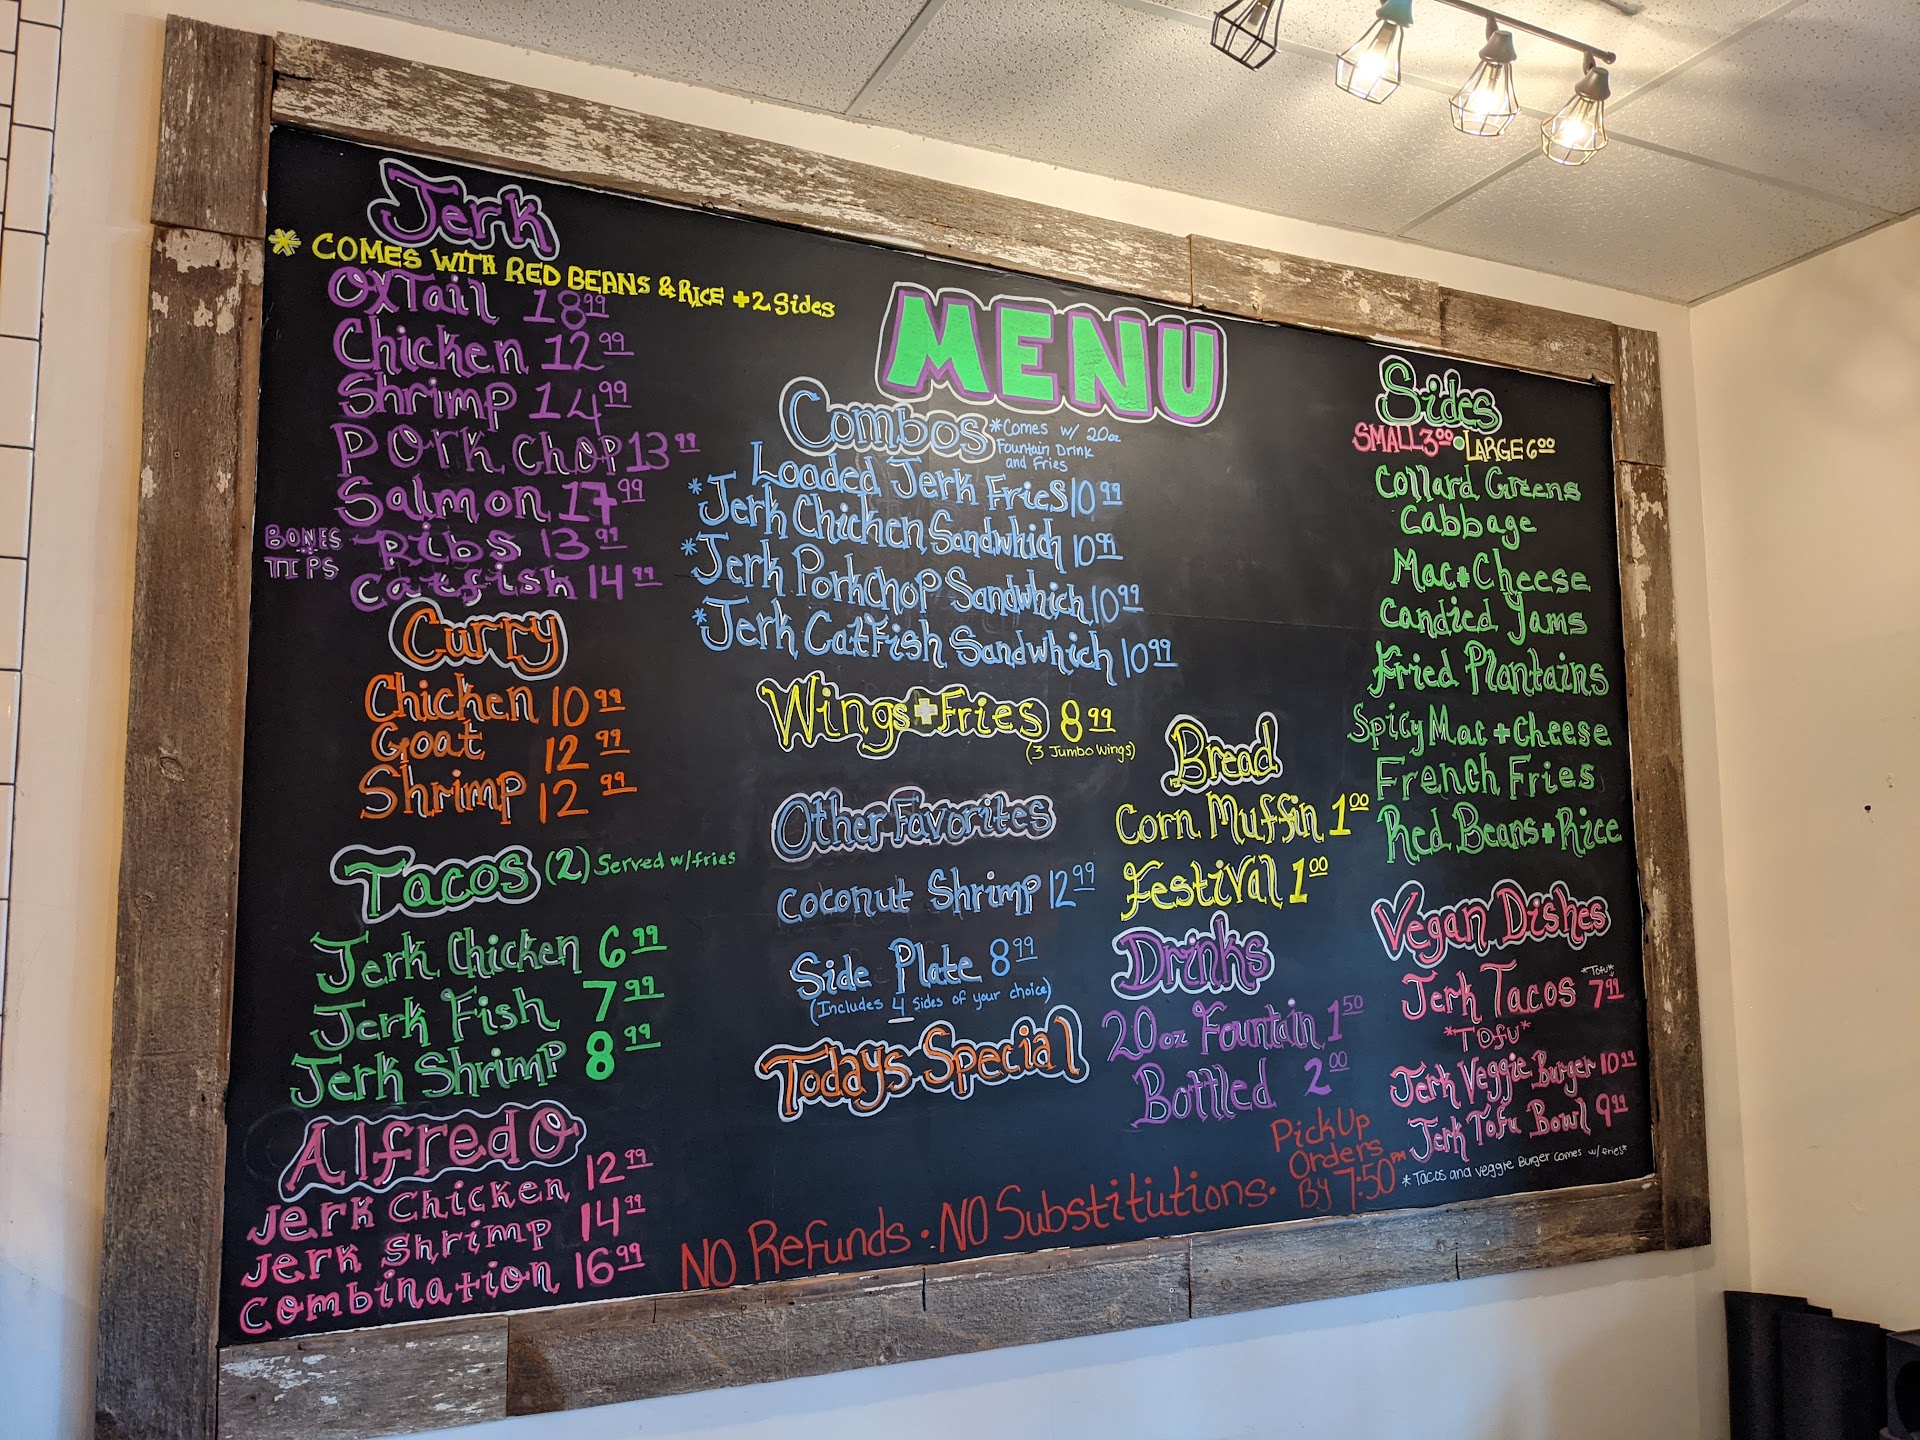 Jerk
* COMES WITH RED BEANS & RICE + 2 Sides
OxTail 18.99
Chicken 12.99
Shrimp 14.99
Pork Chop 13.99
Salmon 17.99
BONES + TIPS Ribs 13.99
Catfish 14.99
Curry
Chicken 10.99
Goat 12.99
Shrimp 12.99
Tacos (2) Served w/fries
Jerk Chicken 6.99
Jerk Fish 7.99
Jerk Shrimp 8.99
Alfredo
Jerk Chicken 12.99
Jerk Shrimp 14.99
Combination 16.99
MENU
Combos *Comes w/ 20oz
Fountain Drink
and Fries
Loaded Jerk Fries 10.99
*Jerk Chicken Sandwhich 10.99
*Jerk Porkchop Sandwhich 10.99
*Jerk Catfish Sandwhich 10.99
Wings + Fries 8.99
(3 Jumbo Wings)
Other Favorites
Coconut Shrimp 12.99
Side Plate 8.99
(Includes 4 sides of your choice)
Todays Special
Bread
Corn Muffin 1.00
Festival 1.00
Drinks
20oz Fountain 1.50
Bottled 2.00
Sides
SMALL 3.00 • LARGE 6.00
Collard Greens
Cabbage
Mac + Cheese
Candied Yams
Fried Plantains
Spicy Mac + Cheese
French Fries
Red Beans + Rice
Vegan Dishes
*Tofu*
Jerk Tacos 7.99
*Tofu*
Jerk Veggie Burger 10.99
Jerk Tofu Bowl 9.99
*Tacos and Veggie Burger comes w/ fries*
Pick Up
Orders
By 7:50 PM
NO Refunds • NO Substitutions •